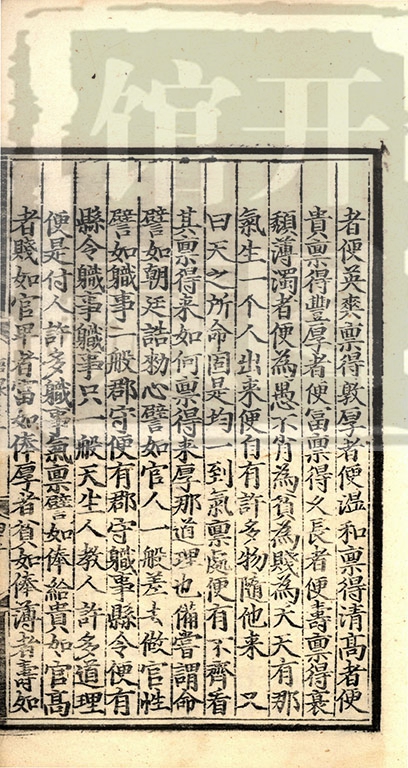 者便英爽稟得敦厚者便温和稟得清高者便
貴稟得豐厚者便富稟得乆長者便壽稟得衰
頽薄濁者便為愚不肖為貧為賤為夭天有那
氣生一个人出来便自有許多物随他来 又
曰天之所命固是均一到氣稟處便有不齊看
其稟得来如何稟得来厚那道理也備嘗謂命
譬如朝廷誥勑心譬如官人一般差去做官性
譬如職事一般郡守便有郡守職事縣令便有
縣令職事職事只一般天生人教人許多道理
便是付人許多職事氣稟譬如俸給貴如官高
者賤如官卑者富如俸厚者貧如俸薄者壽如
开
馆